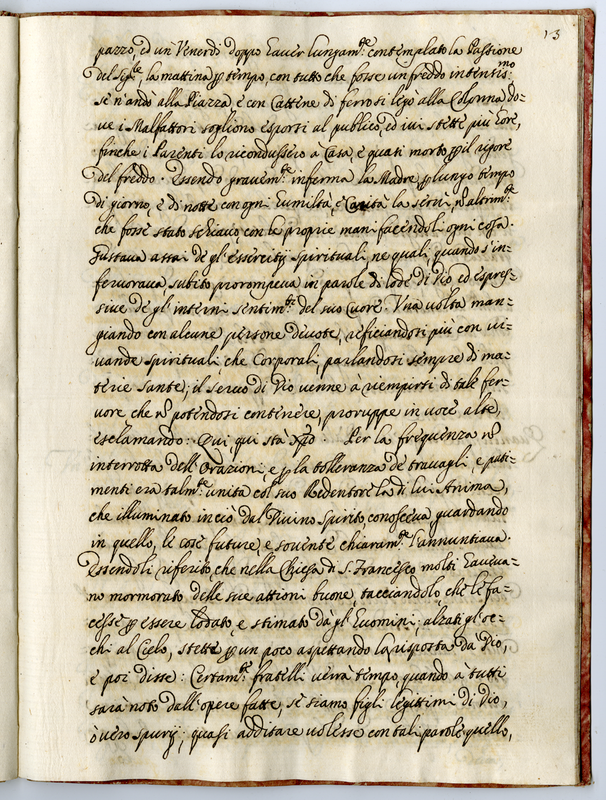 13
pazzo, ed un Venerdi doppo hauer lungam.te contemplato la Passione
del Sig.re, la mattina p tempo, con tutto che fosse un freddo intensis.mo
se n'andò alla Piazza, e con Cattene di ferro si legò alla Colonna, do=
ue i Malfattori sogliono esporsi al publico, ed iui stette più hore,
finche i Parenti lo ricondussero à Casa, e quasi morto p il rigore
del freddo. Essendo grauem.te inferma la Madre, p lungo tempo
di giorno, e di notte con ogni humiltà, e Carità la seruì, nõ altrim.te
che fosse stato schiauo, con le proprie mani facendoli ogni cosa.
Gustaua assai de gl'essercitij spirituali, ne quali quando s'in=
feruoraua, subito prorompeua in parole di lode di Dio, ed espres=
siue de gl'interni sentim.ti del suo Cuore. Vna uolta man=
giando con alcune persone deuote, reficiandosi più con ui=
uande spirituali, che Corporali, parlandosi sempre di ma=
terie sante, il seruo di Dio uenne a riempirsi di tale fer=
uore che nõ potendosi contenere, proruppe in uoce alta,
esclamando: Qui qui stà Xpõ. Per la frequenza nõ
interrotta dell'Orazioni, e p la tolleranza de trauagli, e pati=
menti era talm.te unita col suo Redentore la di lui Anima,
che illuminato in ciò dal Diuino Spirito, conosceua guardando
in quello, le cose future, e souente chiaram.te l'annuntiaua.
Essendoli riferito che nella Chiesa di S. Francesco molti haueua=
no mormorato delle sue attioni buone, tacciandolo che le fa=
cesse p essere lodato, e stimato dà gl'huomini, alzati gl'oc=
chi al Cielo, stette p un poco aspettando la risposta da Dio,
e poi disse: Certam.te fratelli uerrà tempo quando à tutti
sarà noto dall'opere fatte, se siamo figli legittimi di Dio,
ò uero spurij; quasi additare uolesse con tali parole quello,